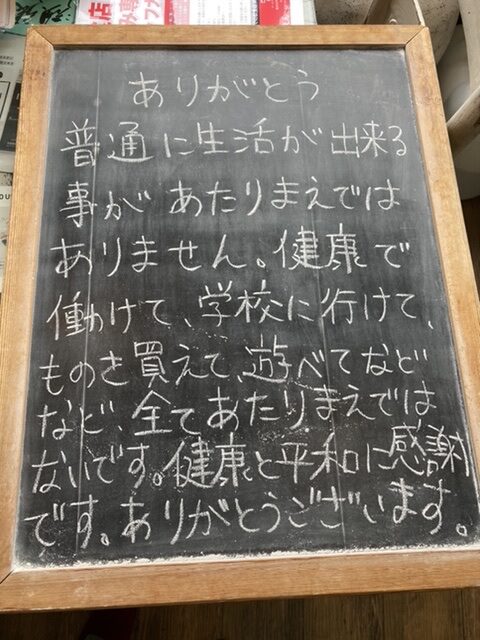 ありがとう
普通に生活が出来る
事があたりまえでは
ありません。健康で
働けて、学校に行けて、
ものを買えて、遊べてなど
など、全てあたりまえでは
ないです。健康と平和に感謝
です。ありがとうございます。